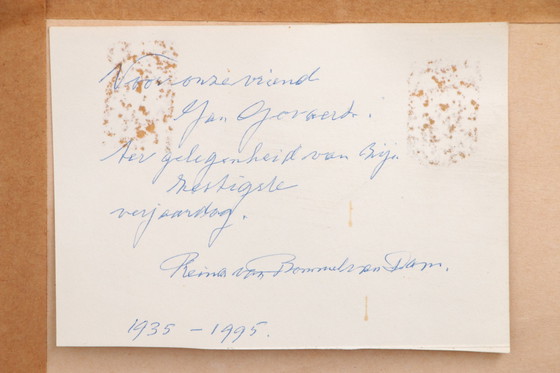 Voor onze vriend
Jan Govaerts.
ter gelegenheid van zijn
zestigste
verjaardag.
Reina van Bommel van Dam.
1935 - 1995.